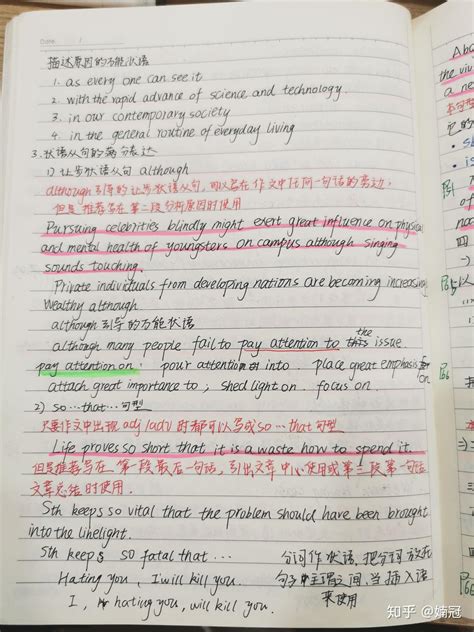 Date
描述原因的万能状语
1. as every one can see it
2. with the rapid advance of science and technology.
3. in our contemporary society
4. in the general routine of everyday living
3.状语从句的高分表达
1) 让步状语从句 although
although引导的让步状语从句,可以写在作文中任何一句话的旁边,
但是推荐写在第二段分析原因时使用
Pursuing celebrities blindly might exert great influence on physical
and mental health of youngsters on campus although singing
sounds touching.
Private individuals from developing nations are becoming increasing
Wealthy although
although引导的万能状语
although many people fail to pay attention to the issue
pay attention on: pour attention into. place great emphasis on
attach great importance to; shed light on. focus on
2) so…that…句型
只要作文中出现adj/adv时都可以写成so…that句型
Life proves so short that it is a waste how to spend it.
但是推荐写在第一段最后一句话,引出文章中心使用或第三段第一句话
文章总结时使用.
Sth keeps so vital that the problem should have been brought
into the limelight.
Sth keeps so fatal that…
分词作状语,把分词放在
Hating you, I will kill you.
句子中主谓之间,当插入语
I, hating you, will kill you.
来使用
Abo
the viv
a ne
知乎 @婻冠